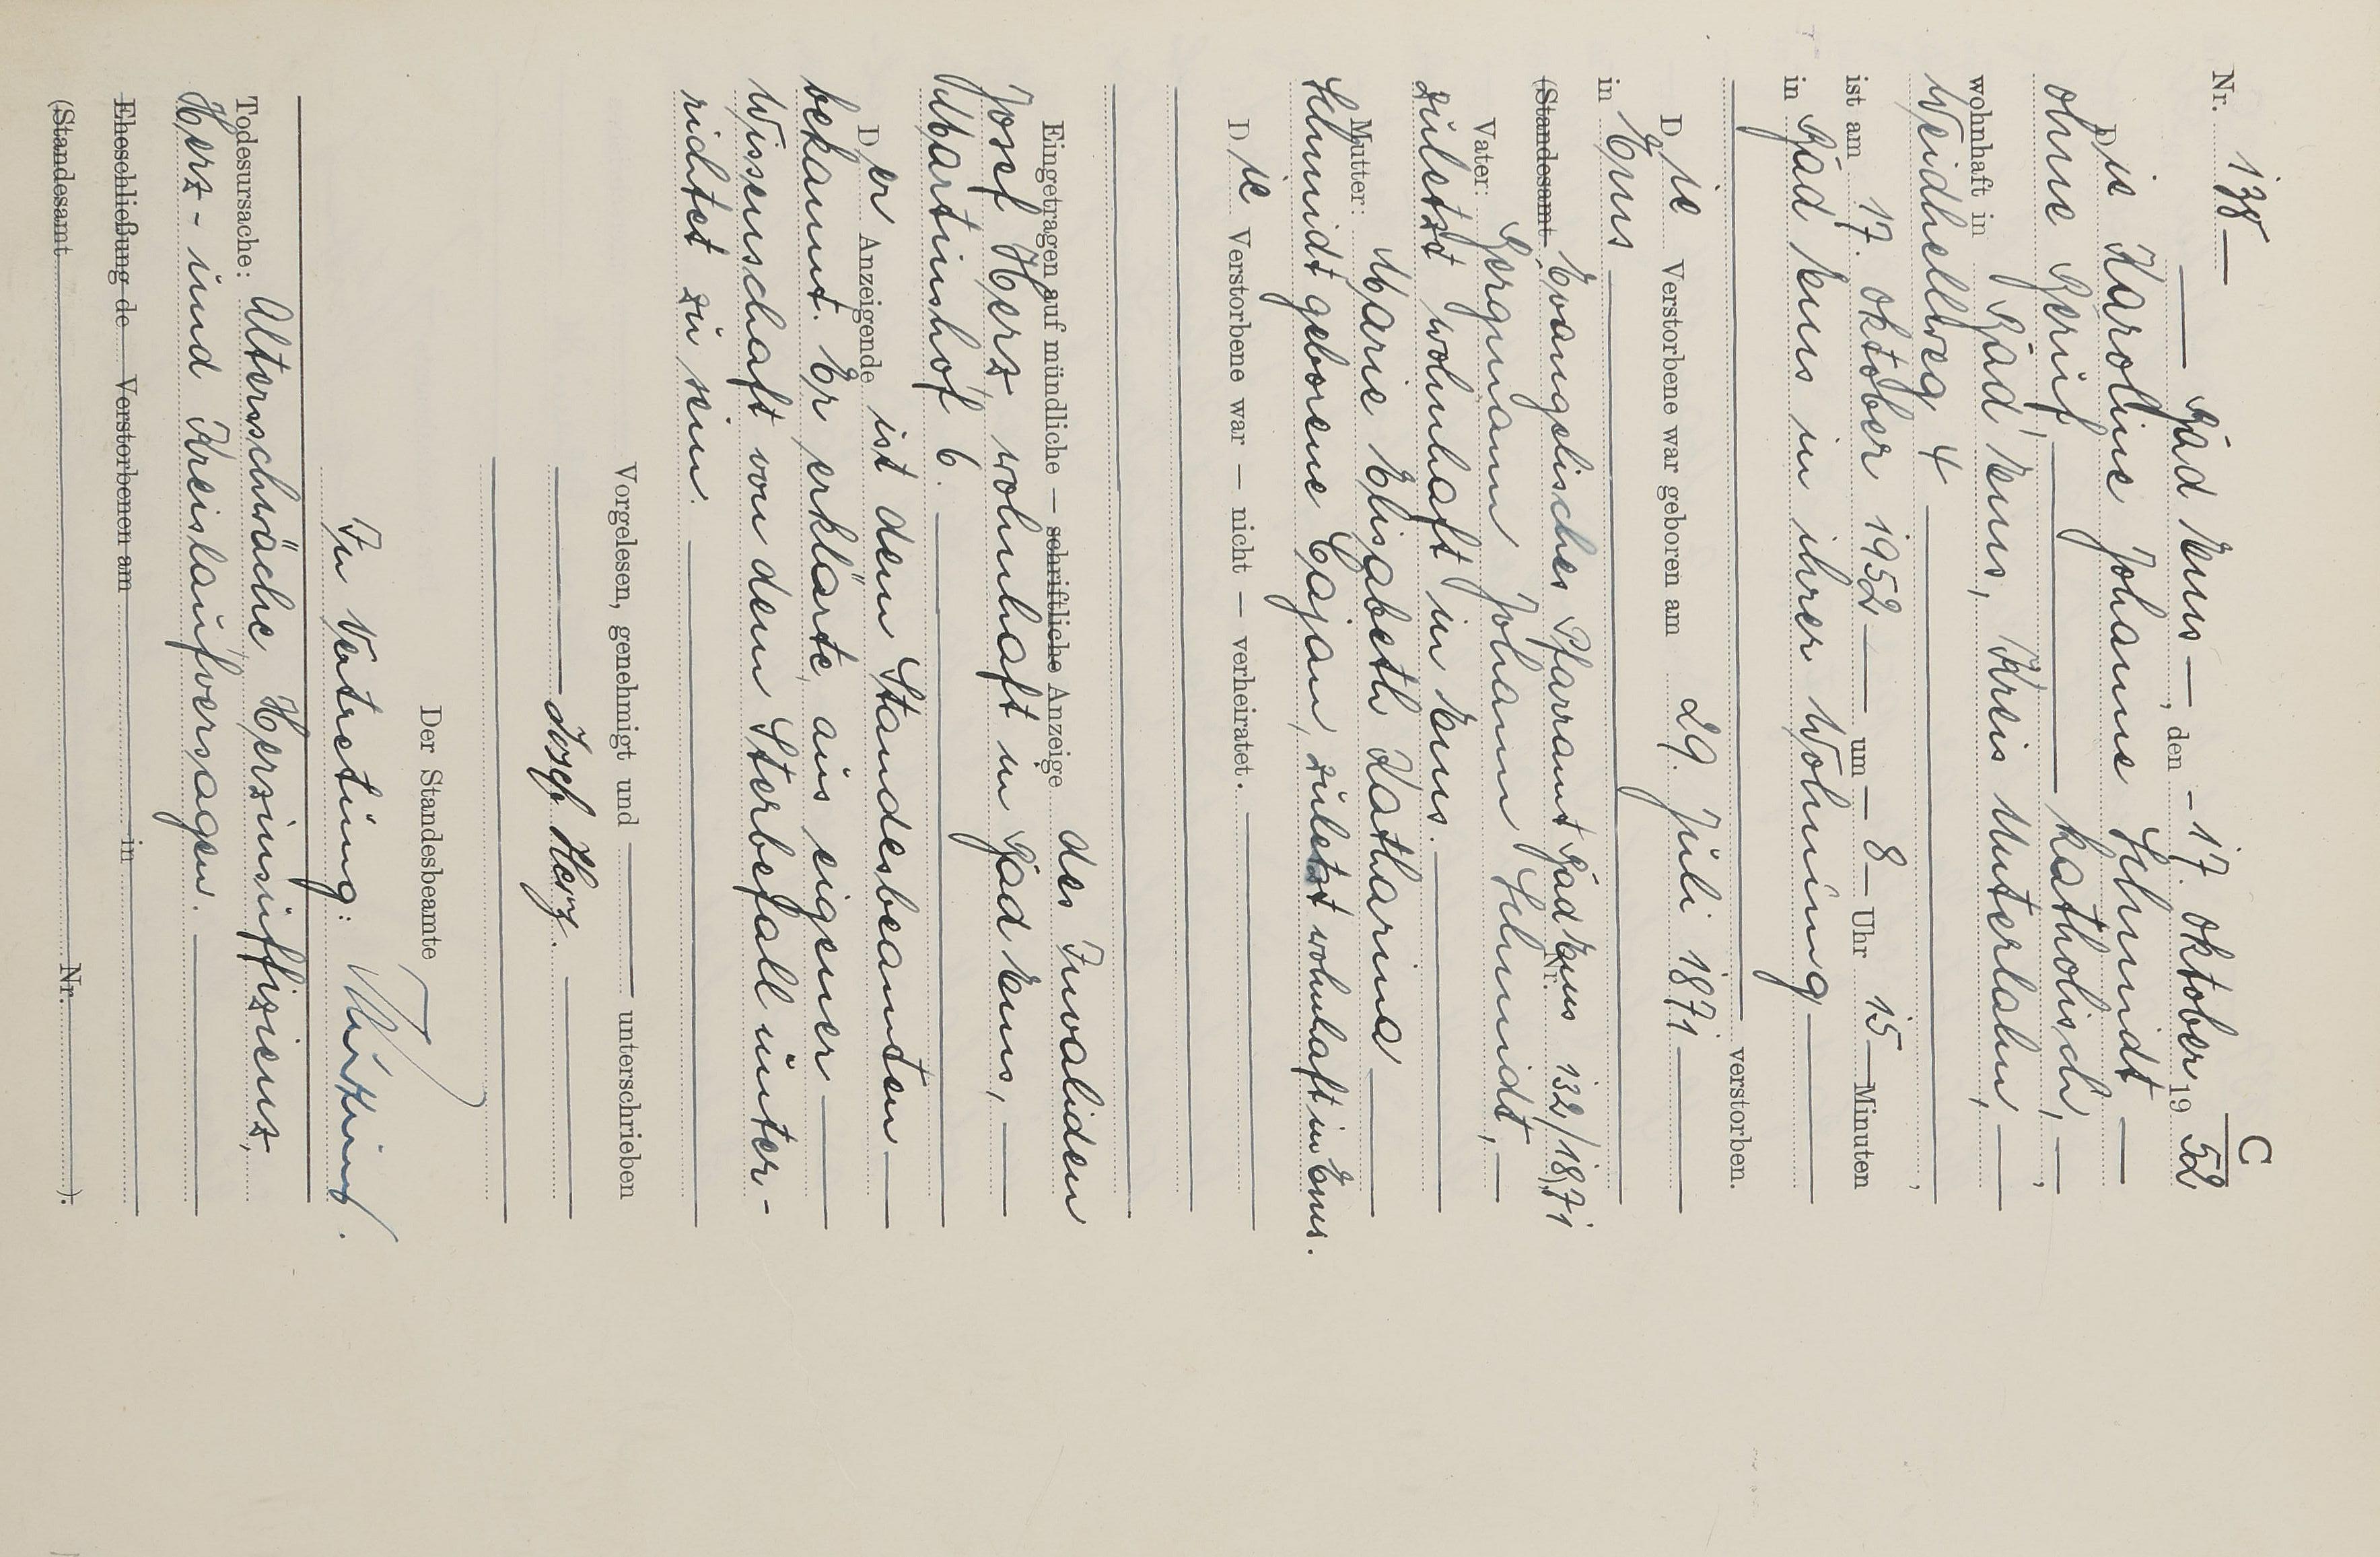 C
Nr. 138
Bad Ems, den 17. Oktober 1952
Die Karoline Johanne Schmidt
ohne Beruf katholisch,
wohnhaft in Bad Ems, Kreis Unterlahn,
Weidhellweg 4,
ist am 17. Oktober 1952 um 8 Uhr 15 Minuten
in Bad Ems in ihrer Wohnung
verstorben.
Die Verstorbene war geboren am 29. Juli 1871
in Ems
(Standesamt Evangelisches Pfarramt Bad Ems Nr. 132/1871
Vater: Bergmann Johann Schmidt,
zuletzt wohnhaft in Ems.
Mutter: Marie Elisabeth Katharina
Schmidt geborene Cajan, zuletzt wohnhaft in Ems.
Die Verstorbene war — nicht — verheiratet.
Eingetragen auf mündliche — schriftliche Anzeige des Invaliden
Josef Herz wohnhaft in Bad Ems,
Martinshof 6.
Der Anzeigende ist dem Standesbeamten
bekannt. Er erklärte, aus eigener
Wissenschaft von dem Sterbefall unter-
richtet zu sein.
Vorgelesen, genehmigt und unterschrieben
Josef Herz.
Der Standesbeamte
In Vertretung:
Todesursache: Altersschwäche, Herzinsuffizienz,
Herz- und Kreislaufversagen.
Eheschließung de Verstorbenen am in
(Standesamt Nr. ).